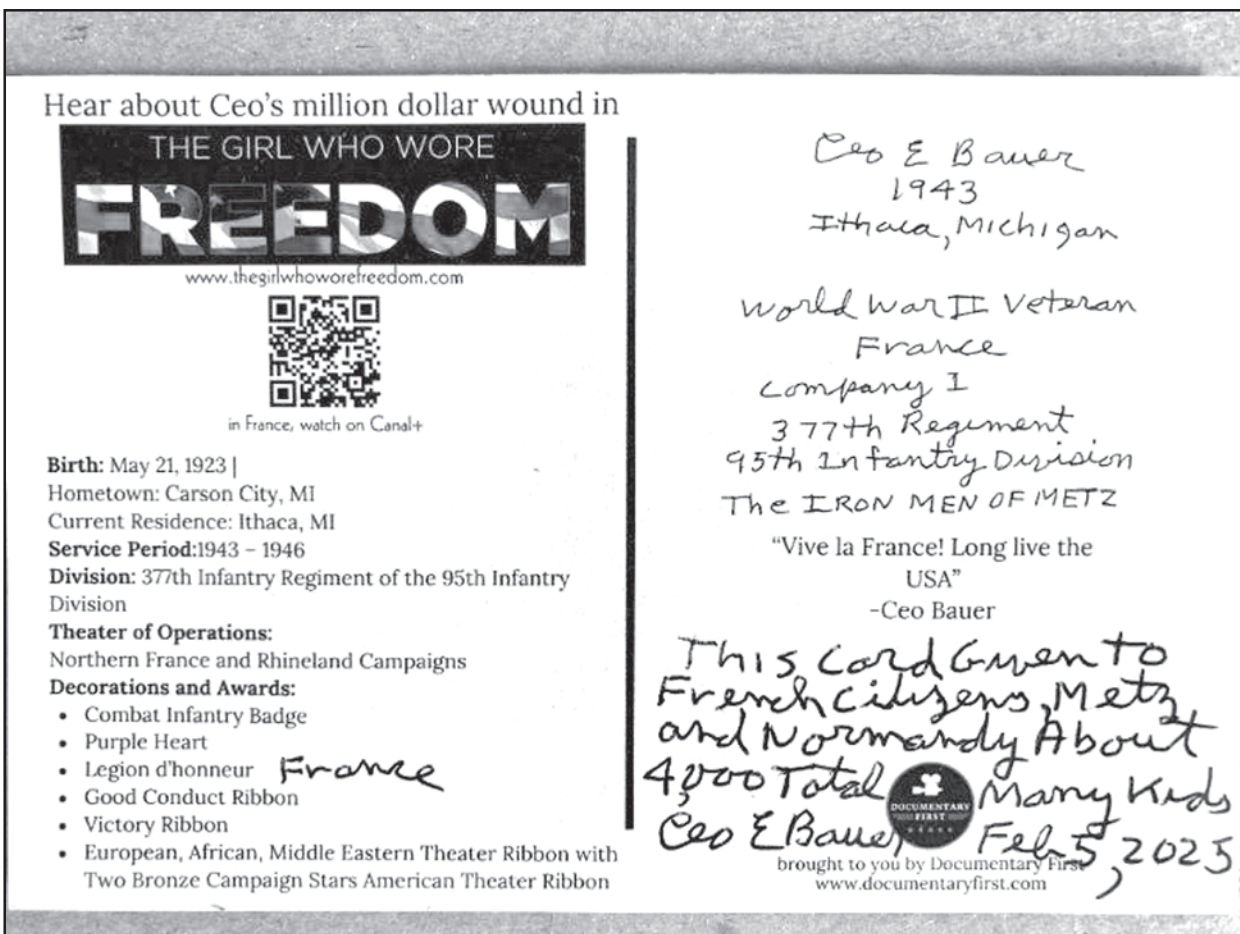 Hear about Ceo's million dollar wound in
THE GIRL WHO WORE
FREEDOM
www.thegirlwhoworefreedom.com
in France, watch on Canal+
Birth: May 21, 1923 |
Hometown: Carson City, MI
Current Residence: Ithaca, MI
Service Period:1943 – 1946
Division: 377th Infantry Regiment of the 95th Infantry
Division
Theater of Operations:
Northern France and Rhineland Campaigns
Decorations and Awards:
• Combat Infantry Badge
• Purple Heart
• Legion d'honneur France
• Good Conduct Ribbon
• Victory Ribbon
• European, African, Middle Eastern Theater Ribbon with
Two Bronze Campaign Stars American Theater Ribbon
Ceo E Bauer
1943
Ithaca, Michigan
World War II Veteran
France
Company I
377th Regiment
95th Infantry Division
The IRON MEN OF METZ
"Vive la France! Long live the
USA"
-Ceo Bauer
This Card Given to
French Citizens, Metz
and Normandy About
4,000 Total Many Kids
DOCUMENTARY
FIRST
Ceo E Bauer Feb 5, 2025
brought to you by Documentary First
www.documentaryfirst.com